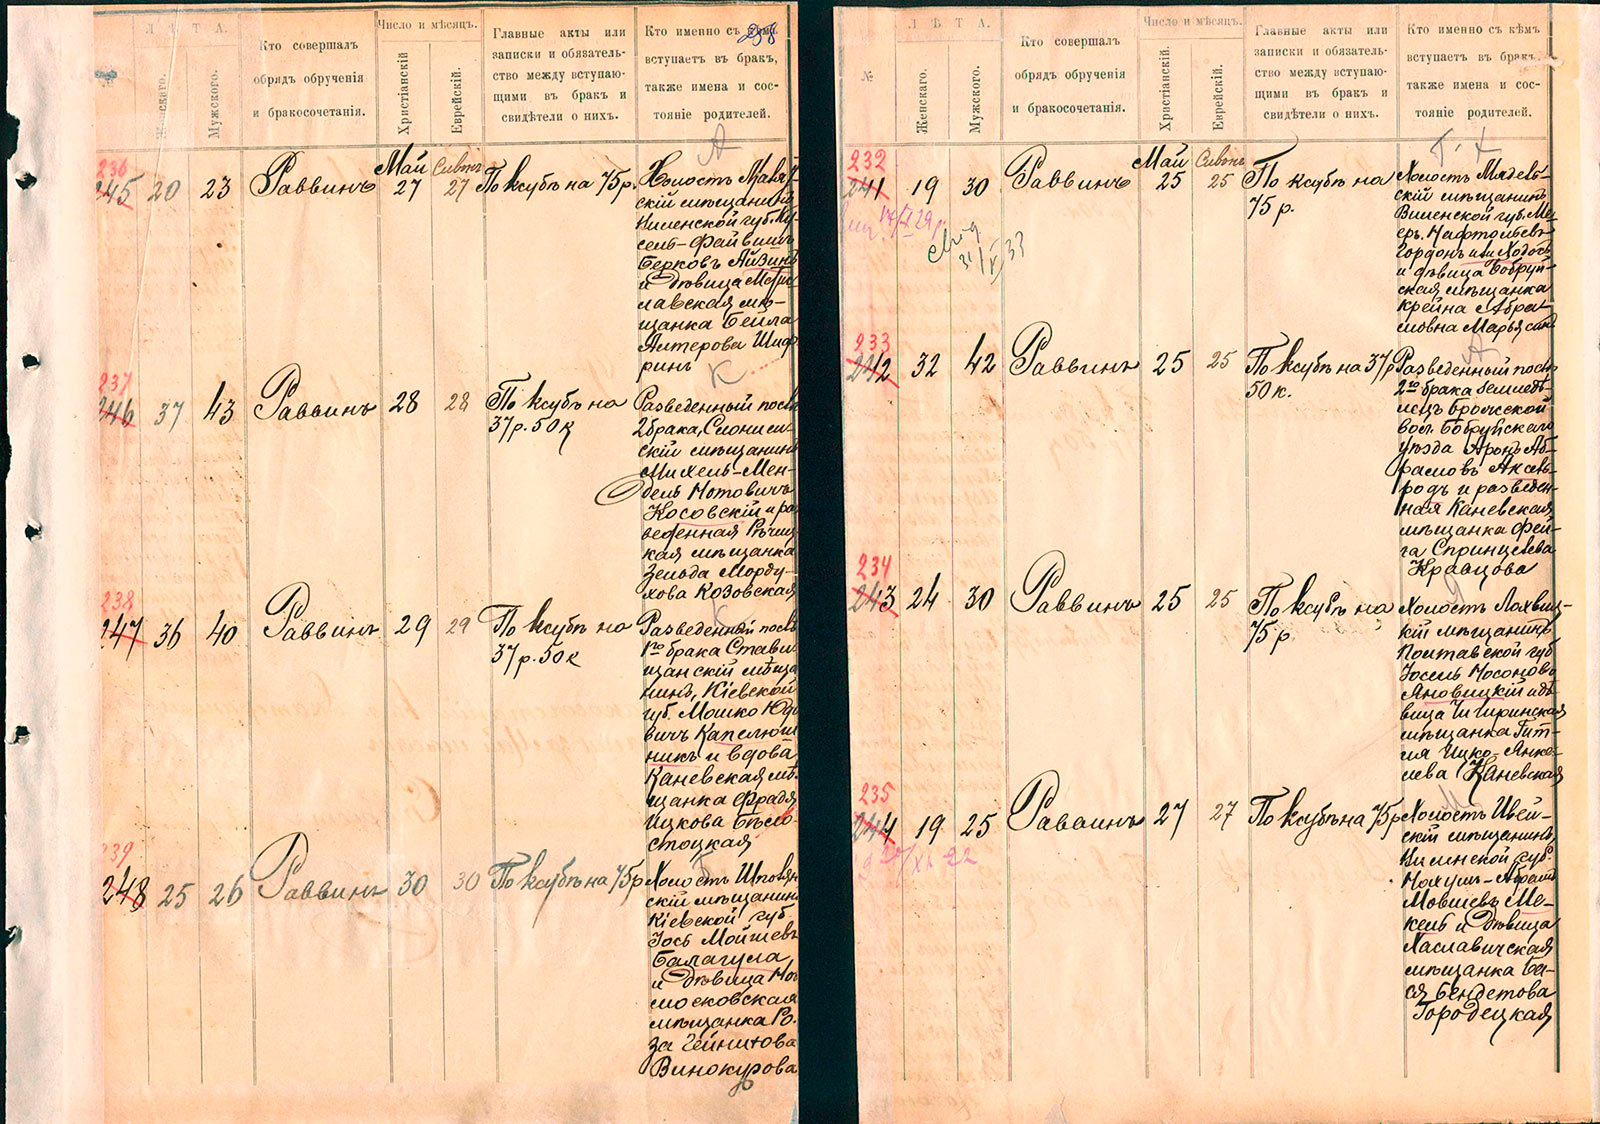 Л Ѣ Т А.
Число и мѣсяцъ.
№
Женскаго.
Мужского.
Кто совершалъ
обрядъ обрученія
и бракосочетанія.
Христіанскій
Еврейскій.
Главные акты или
записки и обязатель-
ство между вступаю-
щими въ бракъ и
свидѣтели о нихъ.
Кто именно съ кѣмъ
вступаетъ въ бракъ,
также имена и сос-
тояніе родителей.
258
А
236
245 20 23 Раввинъ Май 27 Сивонъ 27 По ксубѣ на 75 р.
Холостъ
скій мѣщанинъ
Виленской губ.
сель-Файвишъ
Берковъ Айзинъ
и дѣвица
славская мѣ-
щанка Бейла
Алтерова Шиф
ринъ
К
237
246 37 43 Раввинъ 28 28 По ксубѣ на
37 р. 50 к
Разведенный послѣ
2 брака, Слоним-
скій мѣщанинъ
Михель-Мен-
дель Мотовичъ
Косовскій и раз
веденная Рѣчиц
кая мѣщанка
Зельда Морду-
хова Козовская
К
238
247 36 40 Раввинъ 29 29 По ксубѣ на
37 р. 50 к
Разведенный послѣ
1го брака Стави
щанскій мѣща
нинъ, Кіевской
губ. Мошко Юдо
вичъ Капелюш
никъ и вдова
Каневская мѣ-
щанка Фрадя
Ицкова Бѣло-
стоцкая
Б
239
248 25 26 Раввинъ 30 30 По ксубѣ на 75 р
Холостъ Шполян
скій мѣщанинъ
Кіевской губ
Іось Мойшевъ
Балагула
и дѣвица Но
московская
мѣщанка Ро-
за
Винокурова
Л Ѣ Т А.
Число и мѣсяцъ.
№
Женскаго.
Мужского.
Кто совершалъ
обрядъ обрученія
и бракосочетанія.
Христіанскій
Еврейскій.
Главные акты или
записки и обязатель-
ство между вступаю-
щими въ бракъ и
свидѣтели о нихъ.
Кто именно съ кѣмъ
вступаетъ въ бракъ,
также имена и сос-
тояніе родителей.
Г. Х
232
241 19 30 Раввинъ Май 25 Сивонъ 25 По ксубѣ на
75 р.
Холостъ Мядель-
скій мѣщанинъ
Виленской губ. Ме-
еръ Нафтоліевъ
Гордонъ или Ходосъ
и дѣвица Бобруй-
ская мѣщанка
Крейна Абра-
мовна
А
233
242 32 42 Раввинъ 25 25 По ксубѣ на 37 р
50 к.
Разведенный послѣ
2го брака земледѣ-
лецъ Брожской
вол. Бобруйскаго
уѣзда Аронъ Аб-
рамовъ Аксель-
родъ и разведен-
ная Каневская
мѣщанка Фей-
га Спринцлева
Кравцова
Я
234
243 24 30 Раввинъ 25 25 По ксубѣ на
75 р
Холостъ Лохвиц-
кій мѣщанинъ
Полтавской губ
Іосель Мосоновъ
Яновицкій и дѣ-
вица Чигиринская
мѣщанка Гит-
ля Ицко-Янке-
лева Каневская
М
235
244 19 25 Раввинъ 27 27 По ксубѣ на 75 р
Холостъ Ивей-
скій мѣщанинъ,
Виленской губ.
Нохумъ-Абрамъ
Мовшевъ Ме-
кель и дѣвица
Хаславичская
мѣщанка Ба-
ся Бендетова
Городецкая